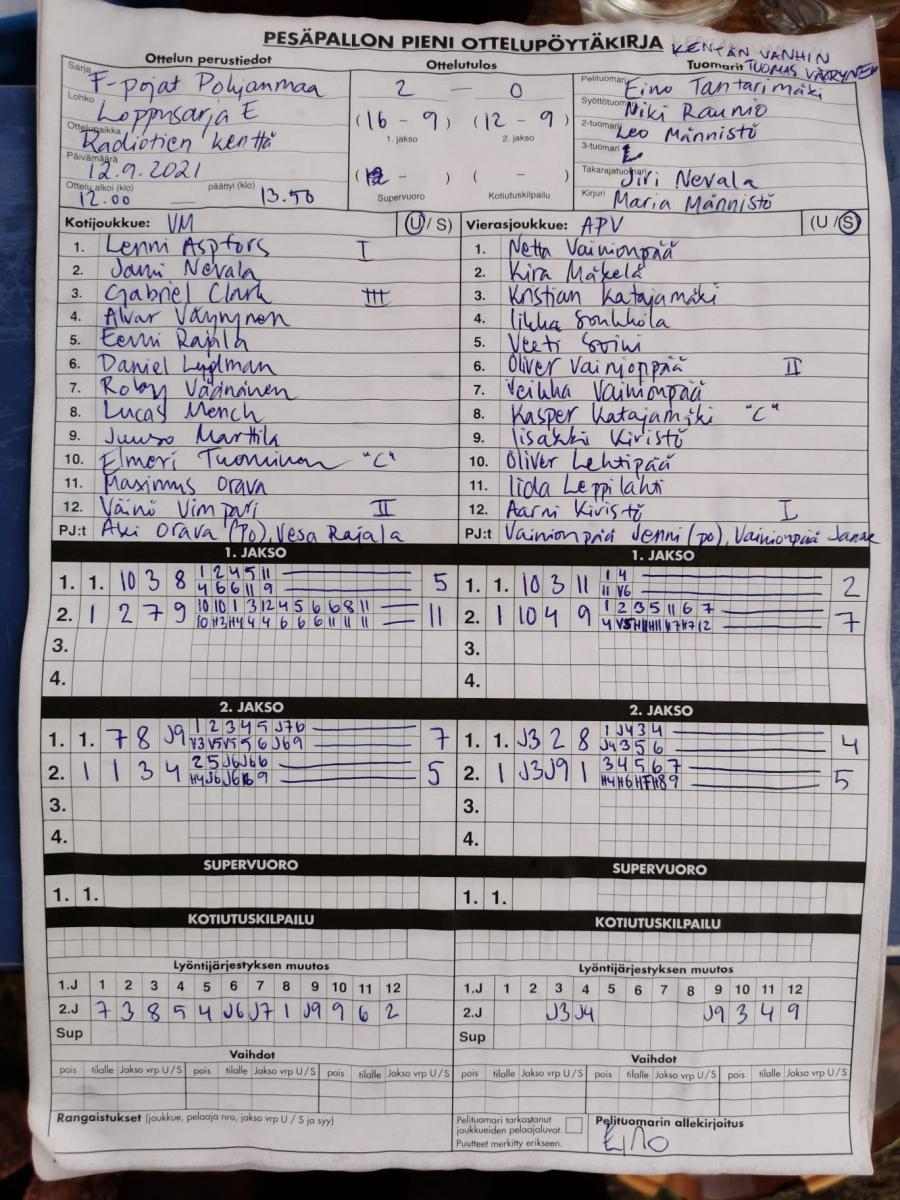 PESÄPALLON PIENI OTTELUPÖYTÄKIRJA
KENTÄN VANHIN
TUOMAS VÄYRYNEN
Ottelun perustiedot
Ottelutulos
Tuomarit
Sarja F-pojat Pohjanmaa
Lohko Loppusarja E
Ottelupaikka Radiotien kenttä
Päivämäärä 12.9.2021
Ottelu alkoi (klo) päättyi (klo)
12.00 — 13.50
2 — 0
(16 - 9) (12 - 9)
1. jakso 2. jakso
( - ) ( - )
Supervuoro Kotiutuskilpailu
Pelituomari Eino Tantarimäki
Syöttötuomari Niki Raunio
2-tuomari Leo Männistö
3-tuomari
Takarajatuomari Jiri Nevala
Kirjuri Maria Männistö
Kotijoukkue: VM (U / S)
1. Lenni Aspfors I
2. Jami Nevala
3. Gabriel Clark
4. Alvar Väyrynen
5. Eemi Rajala
6. Daniel
7. Roby Väänänen
8. Lucas Mench
9. Juuso Marttila
10. Elmeri Tuominen "C"
11. Maximus Orava
12. Väinö Vimpari II
PJ:t Aki Orava (Po), Vesa Rajala
Vierasjoukkue: APV (U / S)
1. Netta Vainionpää
2. Kira Mäkelä
3. Kristian Katajamäki
4. Iikka Soukkola
5. Veeti Soini
6. Oliver Vainionpää II
7. Veikka Vainionpää
8. Kasper Katajamäki "C"
9. Iisakki Kivistö
10. Oliver Lehtipää
11. Iida Leppilahti
12. Aarni Kivistö I
PJ:t Vainionpää Jenni (po), Vainionpää Janne
1. JAKSO
1. 1. 10 3 8 1 2 4 5 11 5
4 6 6 11 9
2. 1 2 7 9 10 10 1 3 12 4 5 6 6 8 11 11
10 H3 H4 4 4 6 6 6 11 11 11
3.
4.
1. JAKSO
1. 1. 10 3 11 1 4 2
11 V6
2. 1 10 4 9 1 2 3 5 11 6 7 7
3.
4.
2. JAKSO
1. 1. 7 8 J9 1 2 3 4 5 J7 6 7
V3 V5 V5 5 6 J6 9
2. 1 1 3 4 2 5 J6 J6 6 5
3.
4.
2. JAKSO
1. 1. J3 2 8 1 J4 3 4 4
J4 3 5 6
2. 1 J3 J9 1 3 4 5 6 7 5
H4 H6 H7 H8 9
3.
4.
SUPERVUORO
1. 1.
SUPERVUORO
1. 1.
KOTIUTUSKILPAILU
KOTIUTUSKILPAILU
Lyöntijärjestyksen muutos
1.J 1 2 3 4 5 6 7 8 9 10 11 12
2.J 7 3 8 5 4 J6 J7 1 J9 9 6 2
Sup
Lyöntijärjestyksen muutos
1.J 1 2 3 4 5 6 7 8 9 10 11 12
2.J J3 J4 J9 3 4 9
Sup
Vaihdot
pois tilalle Jakso vrp U / S pois tilalle Jakso vrp U / S pois tilalle Jakso vrp U / S
Vaihdot
pois tilalle Jakso vrp U / S pois tilalle Jakso vrp U / S pois tilalle Jakso vrp U / S
Rangaistukset (joukkue, pelaaja nro, jakso vrp U / S ja syy)
Pelituomari tarkastanut
joukkueiden pelaajaluvat.
Puutteet merkitty erikseen.
Pelituomarin allekirjoitus
Eino